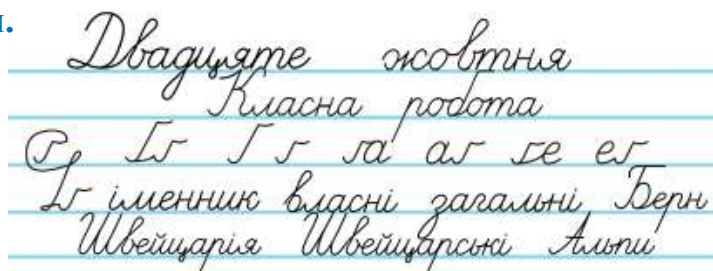 Двадцяте жовтня
Класна робота
Г г га аг ге ег
іменник власні загальні Берн
Швейцарія Швейцарські Альпи